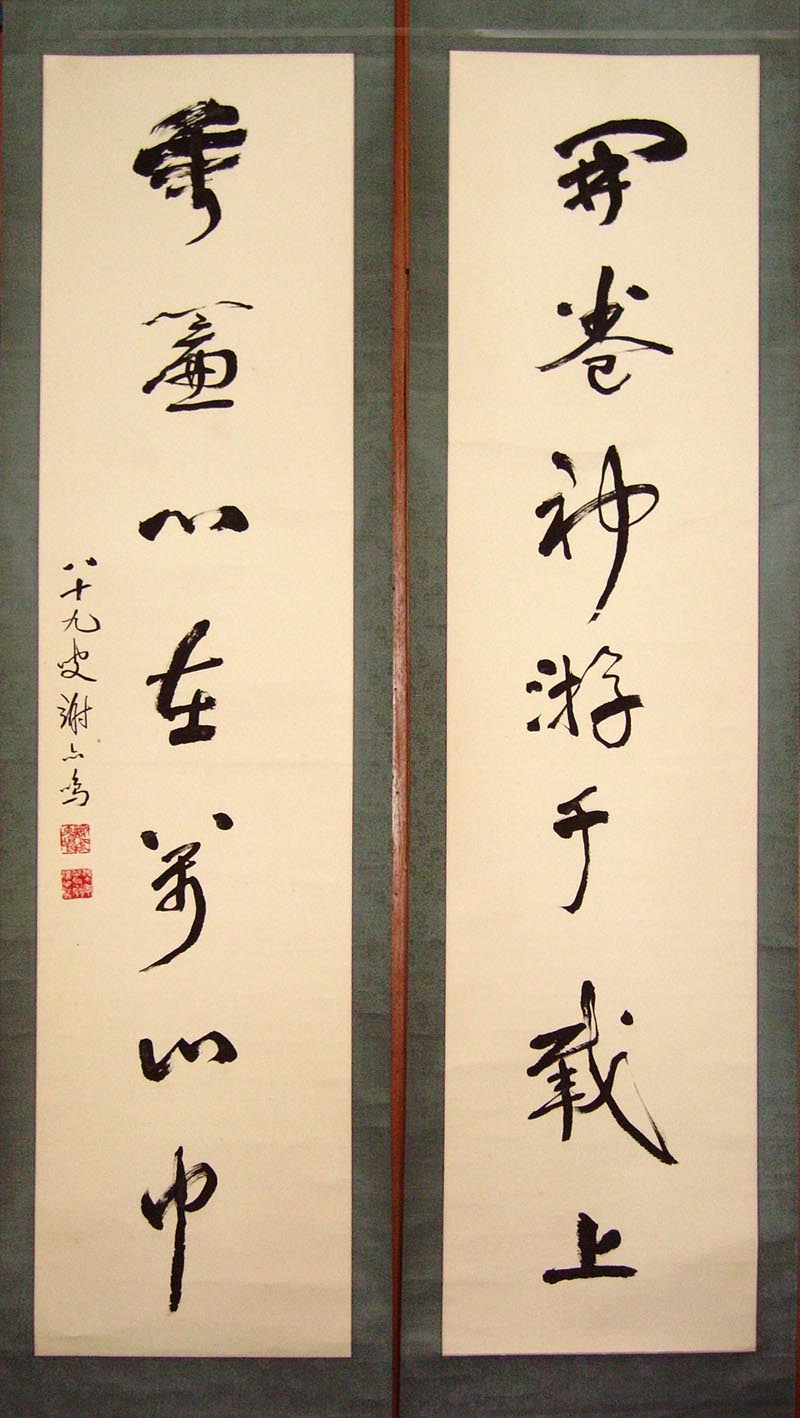 開卷神游千載上
垂簾心在萬山中
八十九叟謝